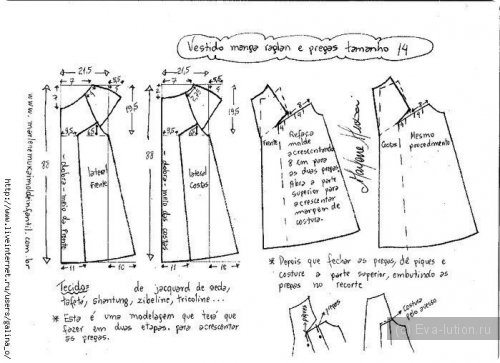 Vestido manga raglan e pregas tamanho 14
21,5
7
5,5
2
5
19,5
88
3,5
lateral frente
dobra - meio da frente
11
16
21,5
7
5,5
2
19,5
88
3,5
lateral costas
dobra - meio das costas
11
16
Frente
Refaça
molde
acrescentando
8 cm para
as duas pregas.
Abra a parte
superior para
acrescentar
margem de
costura.
Marlene Mukai
Costas
Mesmo
procedimento
Tecidos de jacquard de seda,
tafetá, shantung, zibeline, tricoline...
* Esta é uma modelagem que terá que
fazer em duas etapas. para acrescentar
as pregas.
* Depois que fechar as pregas, dê piques e
costure a parte superior, embutindo as
pregas no recorte
piques
pregas
costura
pelo avesso
www.marlenemukaimoldeinfantil.com.br
http://www.liveinternet.ru/users/galina_o/
(c) Eva-lution.ru